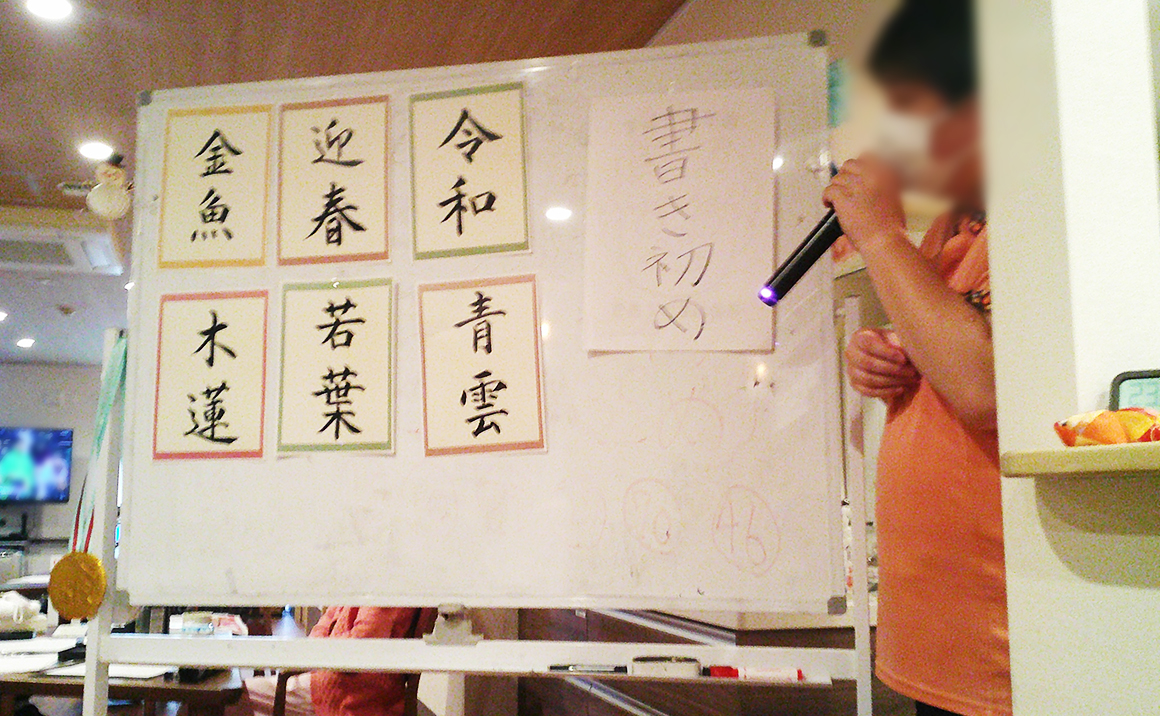 書き初め
令和
迎春
金魚
青雲
若葉
木蓮
46